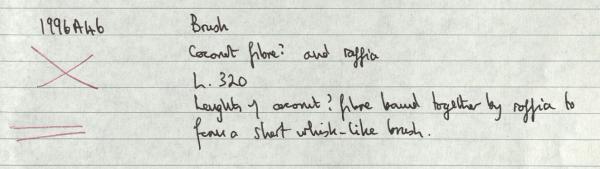 1996A46 Brush
Coconut fibre? and raffia
L. 320
Lenghts of coconut? fibre bound together by raffia to
form a short whisk-like brush.